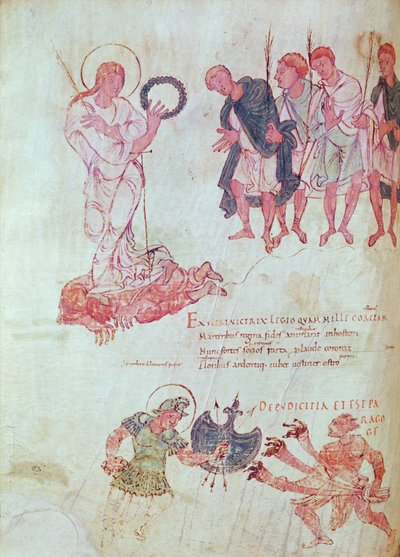 EXULTAT UICTRIX LEGIO QUAM MILLE COACTAM
Martiribus regina fides animarat inhostem
Nunc fortes socios parta plaude coronat
Floribus ardentiq: iubet uestirier ostro
DEPUDICITIA ET EST PA
RAGO
GE